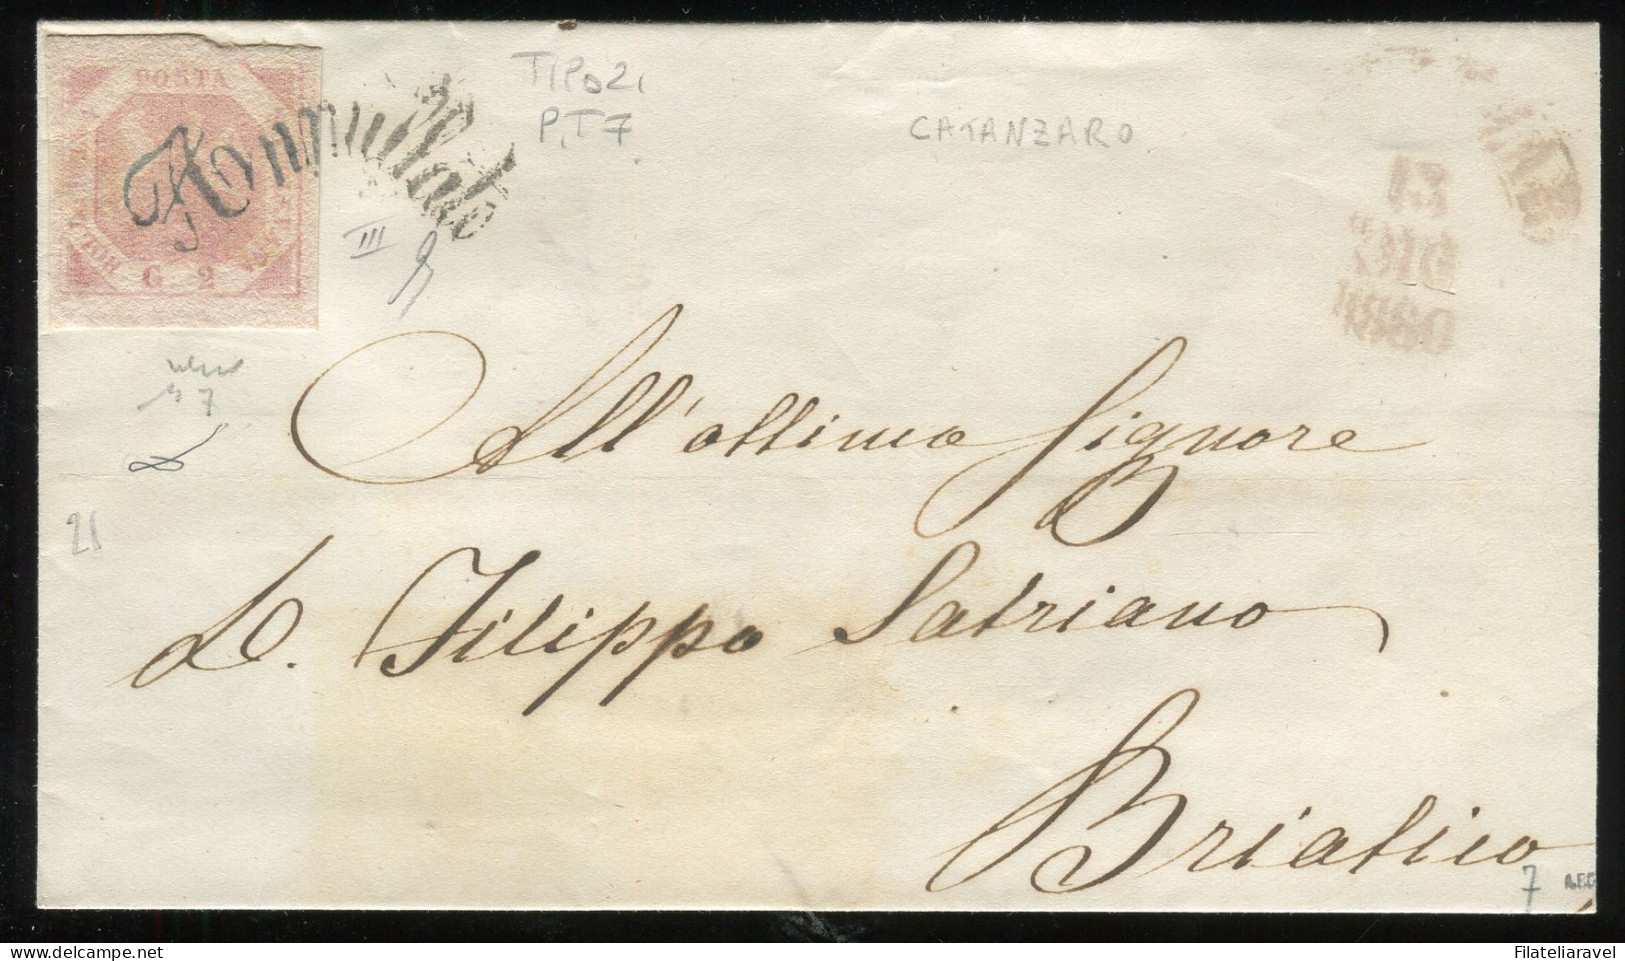 POSTA
G 2
Annullato
TIPO 21
P.T 7
CATANZARO
III
7
21
All'ottimo Signore
D. Filippo Satriano
Briatico
7
Filateliaravel